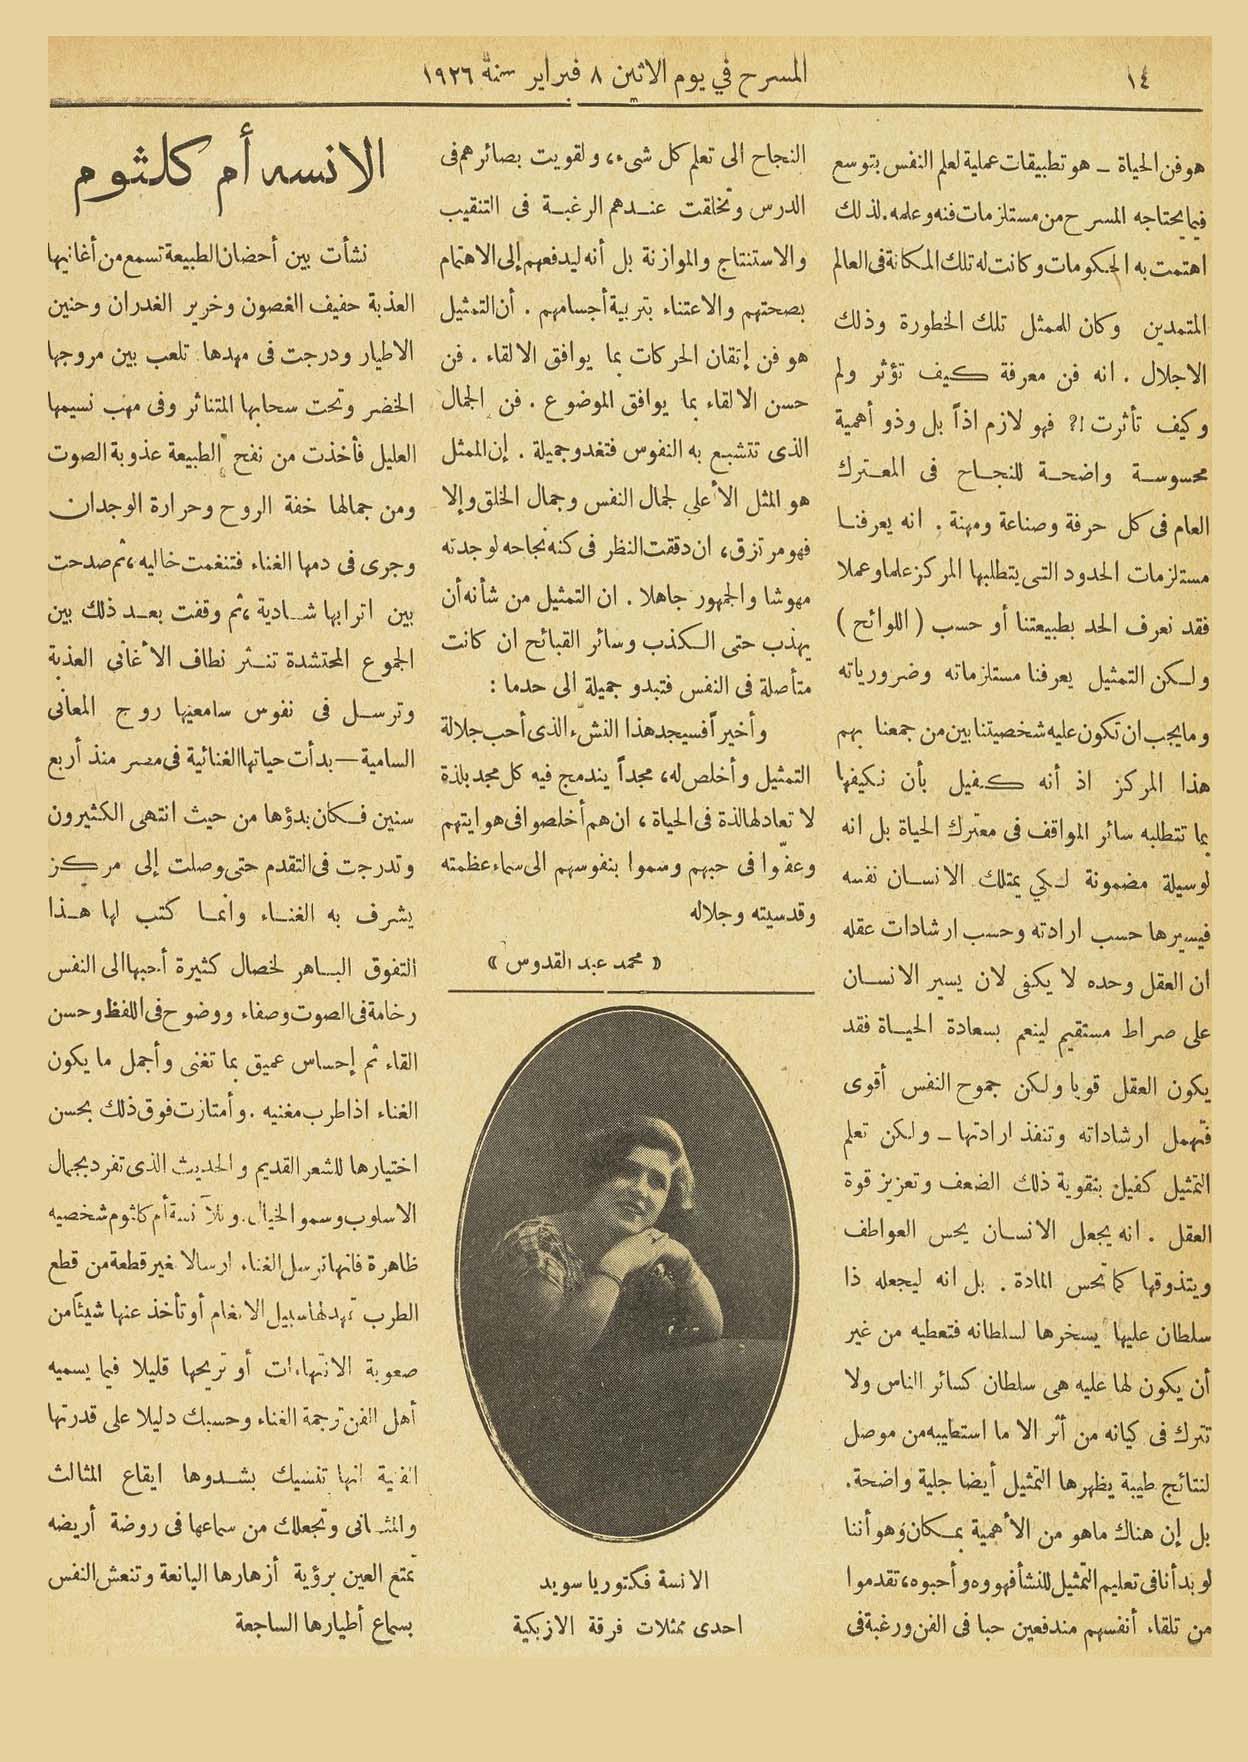 ١٤
المسرح في يوم الاثنين ٨ فبراير سنة ١٩٢٦
هو فن الحياة ـ هو تطبيقات عملية لعلم النفس بتوسع
فيما يحتاجه المسرح من مستلزمات فنه وعلمه. لذلك
اهتمت به الحكومات وكانت له تلك المكانة فى العالم
المتمدين وكان للممثل تلك الخطورة وذلك
الاجلال . انه فن معرفة كيف تؤثر ولم
وكيف تأثرت !? فهو لازم اذاً بل وذو أهمية
محسوسة واضحة للنجاح فى المعترك
العام فى كل حرفة وصناعة ومهنة . انه يعرفنا
مستلزمات الحدود التى يتطلبها المركز علما وعملا
فقد نعرف الحد بطبيعتنا أو حسب ( اللوائح )
ولكن التمثيل يعرفنا مستلزماته وضرورياته
وما يجب ان تكون عليه شخصيتنا بين من جمعنا بهم
هذا المركز اذ أنه كفيل بأن نكيفها
بما تتطلبه سائر المواقف فى معترك الحياة بل انه
لوسيلة مضمونة لكي يمتلك الانسان نفسه
فيسيرها حسب ارادته وحسب ارشادات عقله
ان العقل وحده لا يكفى لان يسير الانسان
على صراط مستقيم لينعم بسعادة الحياة فقد
يكون العقل قويا ولكن جموح النفس أقوى
فتهمل ارشاداته وتنفذ ارادتها ـ ولكن تعلم
التمثيل كفيل بتقوية ذلك الضعف وتعزيز قوة
العقل . انه يجعل الانسان يحس العواطف
ويتذوقها كما تحس المادة . بل انه ليجعله ذا
سلطان عليها يسخرها لسلطانه فتعطيه من غير
أن يكون لها عليه هى سلطان كسائر الناس ولا
تترك فى كيانه من أثر الا ما استطيبه من موصل
لنتائج طيبة يظهرها التمثيل أيضا جلية واضحة.
بل إن هناك ماهو من الأهمية بمكان وهو أننا
لو بدأنا فى تعليم التمثيل للنشأ فهووه وأحبوه، تقدموا
من تلقاء أنفسهم مندفعين حبا فى الفن ورغبة فى
النجاح الى تعلم كل شىء، ولقويت بصائرهم فى
الدرس وتخلقت عندهم الرغبة فى التنقيب
والاستنتاج والموازنة بل أنه ليدفعهم إلى الاهتمام
بصحتهم والاعتناء بتربية أجسامهم . أن التمثيل
هو فن إتقان الحركات بما يوافق الالقاء . فن
حسن الالقاء بما يوافق الموضوع . فن الجمال
الذى تتشبع به النفوس فتغدو جميلة . إن الممثل
هو المثل الأعلي لجمال النفس وجمال الخلق وإلا
فهو مرتزق، ان دققت النظر فى كنه نجاحه لوجدته
مهوشا والجمهور جاهلا . ان التمثيل من شأنه أن
يهذب حتى الكذب وسائر القبائح ان كانت
متأصلة فى النفس فتبدو جميلة الى حد ما :
وأخيراً فسيجد هذا النشء الذى أحب جلالة
التمثيل وأخلص له، مجداً يندمج فيه كل مجد بلذة
لا تعادلها لذة فى الحياة ، ان هم أخلصوا فى هوايتهم
وعفّوا فى حبهم وسموا بنفوسهم الى سماء عظمته
وقدسيته وجلاله
« محمد عبد القدوس »
الانسة فكتوريا سويد
احدى ممثلات فرقة الازبكية
الانسه أم كلثوم
نشأت بين أحضان الطبيعة تسمع من أغانيها
العذبة حفيف الغصون وخرير الغدران وحنين
الاطيار ودرجت فى مهدها تلعب بين مروجها
الخضر وتحت سحابها المتناثر وفى مهب نسيمها
العليل فأخذت من نفح الطبيعة عذوبة الصوت
ومن جمالها خفة الروح وحرارة الوجدان
وجرى فى دمها الغناء فتنغمت خاليه ، ثم صدحت
بين اترابها شادية ، ثم وقفت بعد ذلك بين
الجموع المحتشدة تنثر نطاف الأغانى العذبة
وترسل فى نفوس سامعيها روح المعانى
السامية — بدأت حياتها الغنائية فى مصر منذ أربع
سنين فكان بدؤها من حيث انتهى الكثيرون
وتدرجت فى التقدم حتى وصلت إلى مركز
يشرف به الغناء وانما كتب لها هذا
التفوق الباهر لخصال كثيرة أحبها الى النفس
رخامة فى الصوت وصفاء ووضوح فى اللفظ وحسن
القاء ثم إحساس عميق بما تغنى وأجمل ما يكون
الغناء اذا طرب مغنيه . وأمتازت فوق ذلك بحسن
اختيارها للشعر القديم والحديث الذى تفرد بجمال
الاسلوب وسمو الخيال. وللآنسة أم كلثوم شخصيه
ظاهرة فانها ترسل الغناء ارسالا غير قطعة من قطع
الطرب تمهد لها سبيل الانغام أو تأخذ عنها شيئاً من
صعوبة الانتهاءات أو تريحها قليلا فيما يسميه
أهل الفن ترجمة الغناء وحسبك دليلا على قدرتها
الفنية انها تنسيك بشدوها ايقاع المثالث
والمثانى وتجعلك من سماعها فى روضة أريضه
تمتع العين برؤية أزهارها اليانعة وتنعش النفس
بسماع أطيارها الساجعة